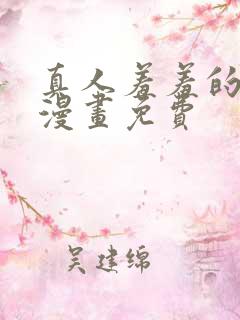 真人羞羞的
漫畫免費
吴建绵